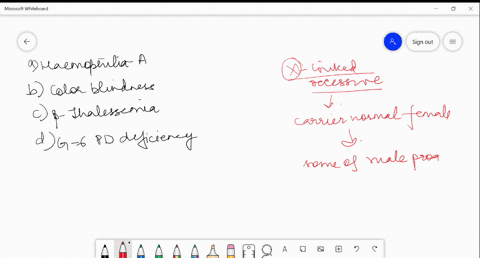 Microsoft Whiteboard
Sign out
a) Haemophilia A
b) Color blindness
c) β-Thalessemia
d) G-6 PD deficiency
X-linked
recessive
carrier normal female
some of male prog